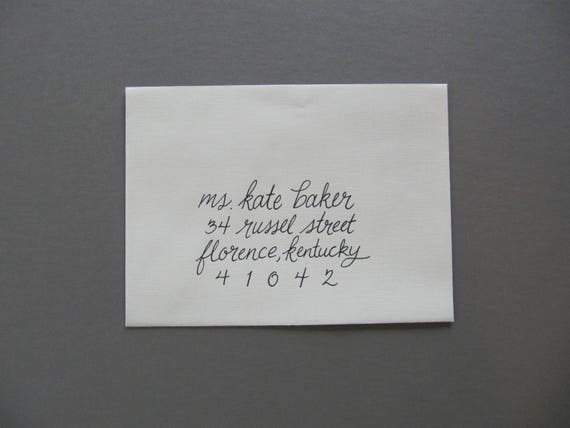 ms. kate baker
34 russel street
florence, kentucky
4 1 0 4 2